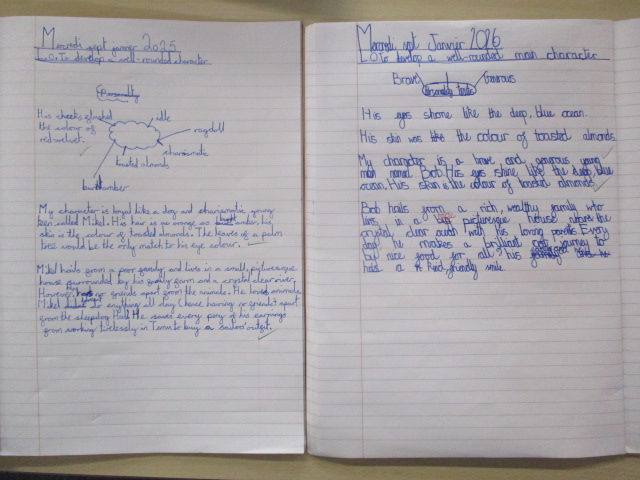 Mercredi sept janvier 2025
L.O: To develop a well-rounded character
Personality
His cheeks flushed
the colour of
red velvet.
idle
ragdoll
charismatic
toasted almonds
burnt amber
My character is loyal like a dog and charismatic young
been called Mikel. His hair is as orange as burnt amber, his
skin is the colour of toasted almonds. The leaves of a palm
tree would be the only match to his eye colour.
Mikel hails from a poor family and lives in a small, picturesque
house surrounded by his family farm and a crystal clear river.
However, friends apart from the animals. He loves animals
Mikel anything all day (hence having no friends) apart
from the sheepdog He saves every penny of his earnings
from working tirelessly in to buy a sailor outfit.
Mercredi sept Janvier 2026
L.O: To develop a well-rounded main character
Brave
Generous
Personality traits
His eyes shone like the deep, blue ocean.
His skin was like the colour of toasted almonds
My character is a brave and generous young
man named Bob. His eyes shine like the deep, blue
ocean. His skin is the colour of toasted almonds.
Bob hails from a rich, wealthy family who
lives in a picturesque house where the
crystal clear with his loving parents. Every
day he makes a brilliant journey to
buy nice food for all his
had a kind, friendly smile.